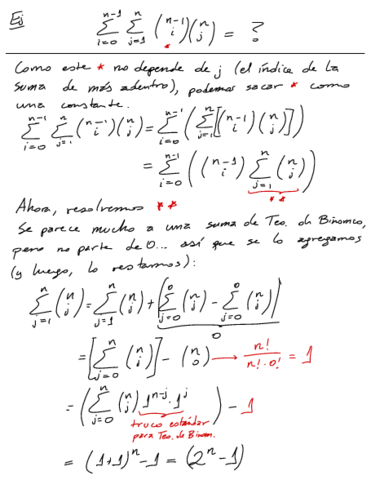 Ej ∑_{i=0}^{n-1} ∑_{j=1}^{n} (n-1 i) (n j) = ?
*
Como este * no depende de j (el índice de la
suma de más adentro), podemos sacar * como
una constante.
∑_{i=0}^{n-1} ∑_{j=1}^{n} (n-1 i) (n j) = ∑_{i=0}^{n-1} (∑_{j=1}^{n} [(n-1 i) (n j)])
= ∑_{i=0}^{n-1} ((n-1 i) ∑_{j=1}^{n} (n j))
**
Ahora, resolvemos **
Se parece mucho a una suma de Teo. de Binomeo,
pero no parte de 0... así que se lo agregamos
(y luego, lo restamos):
∑_{j=1}^{n} (n j) = ∑_{j=1}^{n} (n j) + [∑_{j=0}^{0} (n j) - ∑_{j=0}^{0} (n j)]
0
= [∑_{j=0}^{n} (n j)] - (n 0) → n!/(n!·0!) = 1
= (∑_{j=0}^{n} (n j) 1^{n-j}·1^{j}) - 1
truco estándar
para Teo. de Binom.
= (1+1)^n - 1 = (2^n - 1)